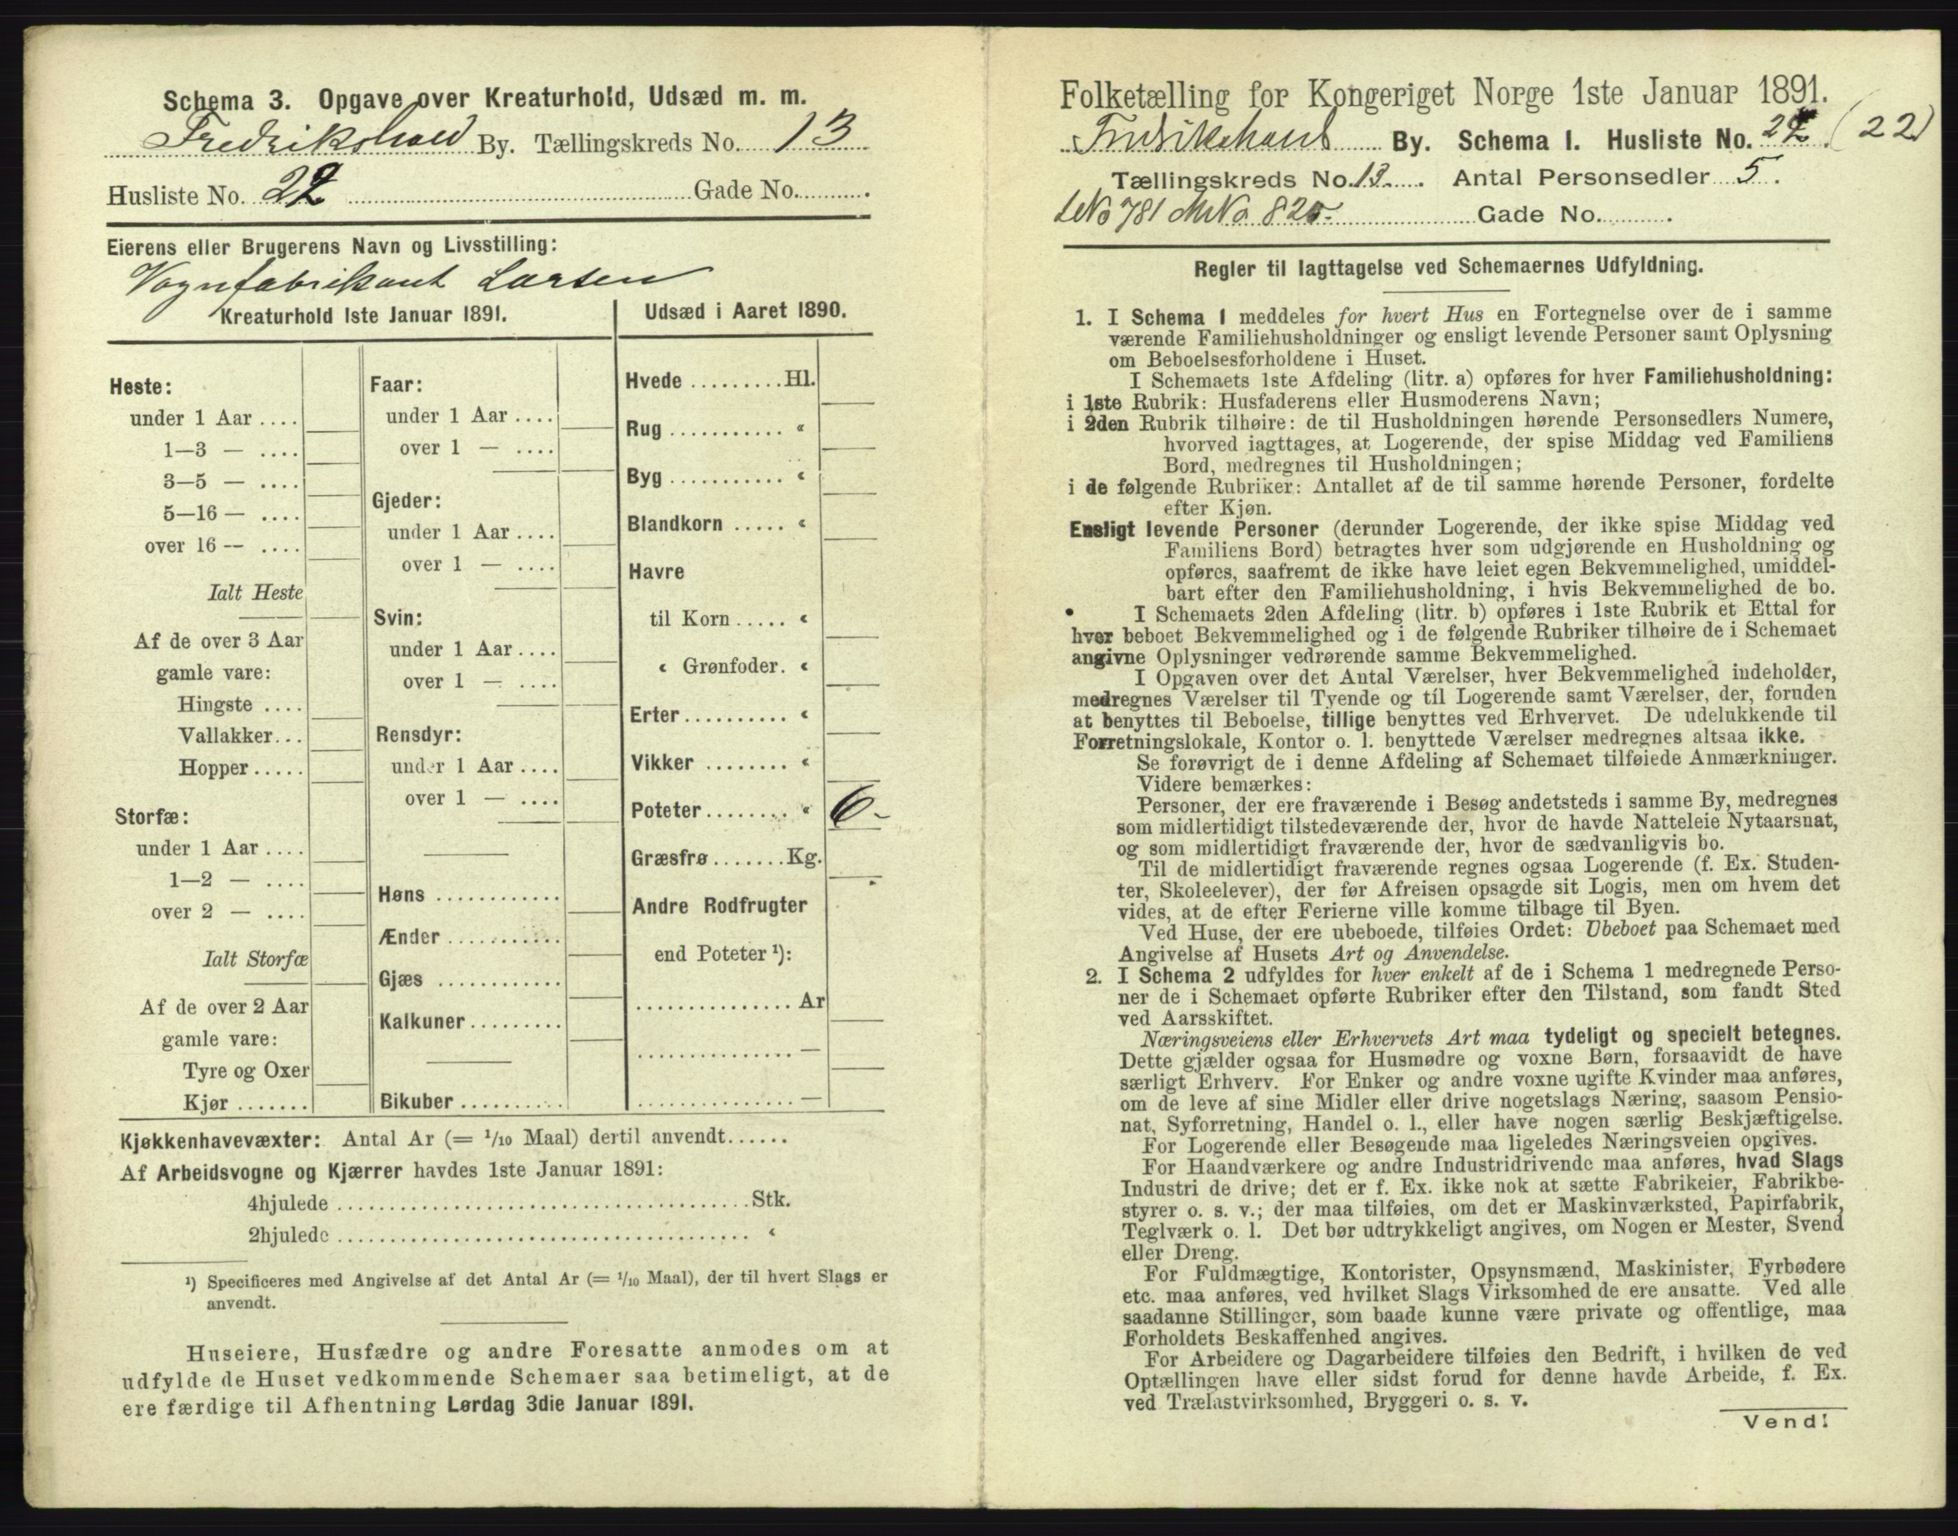 Schema 3. Opgave over Kreaturhold, Udsæd m. m.
Fredrikshald By. Tællingskreds No. 13
Husliste No. 22 Gade No.
Eierens eller Brugerens Navn og Livsstilling:
Vognfabrikant Larsen
Kreaturhold 1ste Januar 1891.
Heste:
under 1 Aar ....
1—3 — ....
3—5 — ....
5—16 — ....
over 16 — ....
Ialt Heste
Af de over 3 Aar
gamle vare:
Hingste ....
Vallakker...
Hopper.....
Storfæ:
under 1 Aar ....
1—2 — ....
over 2 — ....
Ialt Storfæ
Af de over 2 Aar
gamle vare:
Tyre og Oxer
Kjør .......
Faar:
under 1 Aar ....
over 1 — ....
Gjeder:
under 1 Aar ....
over 1 — ....
Svin:
under 1 Aar ....
over 1 — ....
Rensdyr:
under 1 Aar ....
over 1 — ....
Høns ............
Ænder ...........
Gjæs ............
Kalkuner.........
Bikuber ..........
Udsæd i Aaret 1890.
Hvede .........Hl.
Rug ........... «
Byg ........... «
Blandkorn ..... «
Havre
til Korn ..... «
« Grønfoder. «
Erter .......... «
Vikker ........ «
Poteter........ « 6-
Græsfrø .......Kg.
Andre Rodfrugter
end Poteter ¹):
.............. Ar
.............. —
.............. —
Kjøkkenhavevæxter: Antal Ar (= 1/10 Maal) dertil anvendt......
Af Arbeidsvogne og Kjærrer havdes 1ste Januar 1891:
4hjulede ....................................Stk.
2hjulede .................................... «
¹) Specificeres med Angivelse af det Antal Ar (= 1/10 Maal), der til hvert Slags er
anvendt.
Huseiere, Husfædre og andre Foresatte anmodes om at
udfylde de Huset vedkommende Schemaer saa betimeligt, at de
ere færdige til Afhentning Lørdag 3die Januar 1891.
Folketælling for Kongeriget Norge 1ste Januar 1891.
Fredrikshald By. Schema I. Husliste No. 22. (22)
Tællingskreds No. 13. Antal Personsedler 5.
LNo 781 MNo. 820- Gade No.
Regler til Iagttagelse ved Schemaernes Udfyldning.
1. I Schema 1 meddeles for hvert Hus en Fortegnelse over de i samme
værende Familiehusholdninger og ensligt levende Personer samt Oplysning
om Beboelsesforholdene i Huset.
I Schemaets 1ste Afdeling (litr. a) opføres for hver Familiehusholdning:
i 1ste Rubrik: Husfaderens eller Husmoderens Navn;
i 2den Rubrik tilhøire: de til Husholdningen hørende Personsedlers Numere,
hvorved iagttages, at Logerende, der spise Middag ved Familiens
Bord, medregnes til Husholdningen;
i de følgende Rubriker: Antallet af de til samme hørende Personer, fordelte
efter Kjøn.
Ensligt levende Personer (derunder Logerende, der ikke spise Middag ved
Familiens Bord) betragtes hver som udgjørende en Husholdning og
opføres, saafremt de ikke have leiet egen Bekvemmelighed, umiddel-
bart efter den Familiehusholdning, i hvis Bekvemmelighed de bo.
I Schemaets 2den Afdeling (litr. b) opføres i 1ste Rubrik et Ettal for
hver beboet Bekvemmelighed og i de følgende Rubriker tilhøire de i Schemaet
angivne Oplysninger vedrørende samme Bekvemmelighed.
I Opgaven over det Antal Værelser, hver Bekvemmelighed indeholder,
medregnes Værelser til Tyende og til Logerende samt Værelser, der, foruden
at benyttes til Beboelse, tillige benyttes ved Erhvervet. De udelukkende til
Forretningslokale, Kontor o. l. benyttede Værelser medregnes altsaa ikke.
Se forøvrigt de i denne Afdeling af Schemaet tilføiede Anmærkninger.
Videre bemærkes:
Personer, der ere fraværende i Besøg andetsteds i samme By, medregnes
som midlertidigt tilstedeværende der, hvor de havde Natteleie Nytaarsnat,
og som midlertidigt fraværende der, hvor de sædvanligvis bo.
Til de midlertidigt fraværende regnes ogsaa Logerende (f. Ex. Studen-
ter, Skoleelever), der før Afreisen opsagde sit Logis, men om hvem det
vides, at de efter Ferierne ville komme tilbage til Byen.
Ved Huse, der ere ubeboede, tilføies Ordet: Ubeboet paa Schemaet med
Angivelse af Husets Art og Anvendelse.
2. I Schema 2 udfyldes for hver enkelt af de i Schema 1 medregnede Perso-
ner de i Schemaet opførte Rubriker efter den Tilstand, som fandt Sted
ved Aarsskiftet.
Næringsveiens eller Erhvervets Art maa tydeligt og specielt betegnes.
Dette gjælder ogsaa for Husmødre og voxne Børn, forsaavidt de have
særligt Erhverv. For Enker og andre voxne ugifte Kvinder maa anføres,
om de leve af sine Midler eller drive nogetslags Næring, saasom Pensio-
nat, Syforretning, Handel o. l., eller have nogen særlig Beskjæftigelse.
For Logerende eller Besøgende maa ligeledes Næringsveien opgives.
For Haandværkere og andre Industridrivende maa anføres, hvad Slags
Industri de drive; det er f. Ex. ikke nok at sætte Fabrikeier, Fabrikbe-
styrer o. s. v.; der maa tilføies, om det er Maskinværksted, Papirfabrik,
Teglværk o. l. Det bør udtrykkeligt angives, om Nogen er Mester, Svend
eller Dreng.
For Fuldmægtige, Kontorister, Opsynsmænd, Maskinister, Fyrbødere
etc. maa anføres, ved hvilket Slags Virksomhed de ere ansatte. Ved alle
saadanne Stillinger, som baade kunne være private og offentlige, maa
Forholdets Beskaffenhed angives.
For Arbeidere og Dagarbeidere tilføies den Bedrift, i hvilken de ved
Optællingen have eller sidst forud for denne havde Arbeide, f. Ex.
ved Trælastvirksomhed, Bryggeri o. s. v.
Vend!